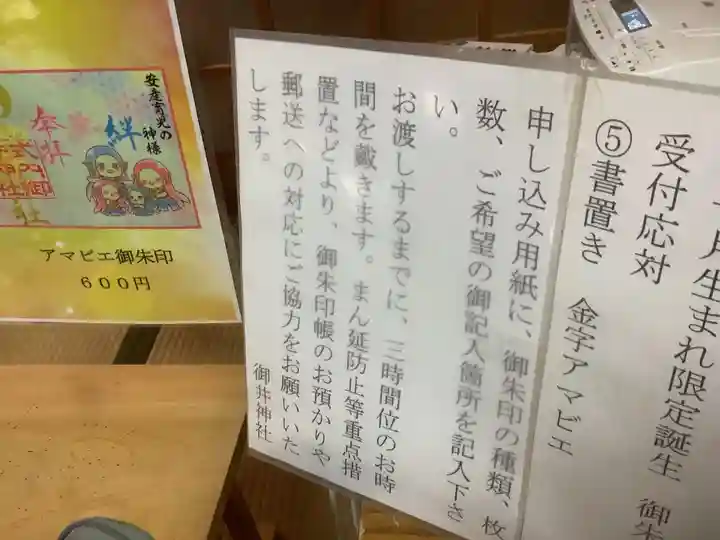 月生まれ限定誕生 御朱
受付応対
⑤書置き 金字アマビエ
申し込み用紙に、御朱印の種類、枚
数、ご希望の御記入箇所を記入下さ
い。
お渡しするまでに、三時間位のお時
間を戴きます。まん延防止等重点措
置などより、御朱印帳のお預かりや
郵送への対応にご協力をお願いいた
します。
御井神社
安産育児の神様
絆
奉拝
アマビエ御朱印
600円